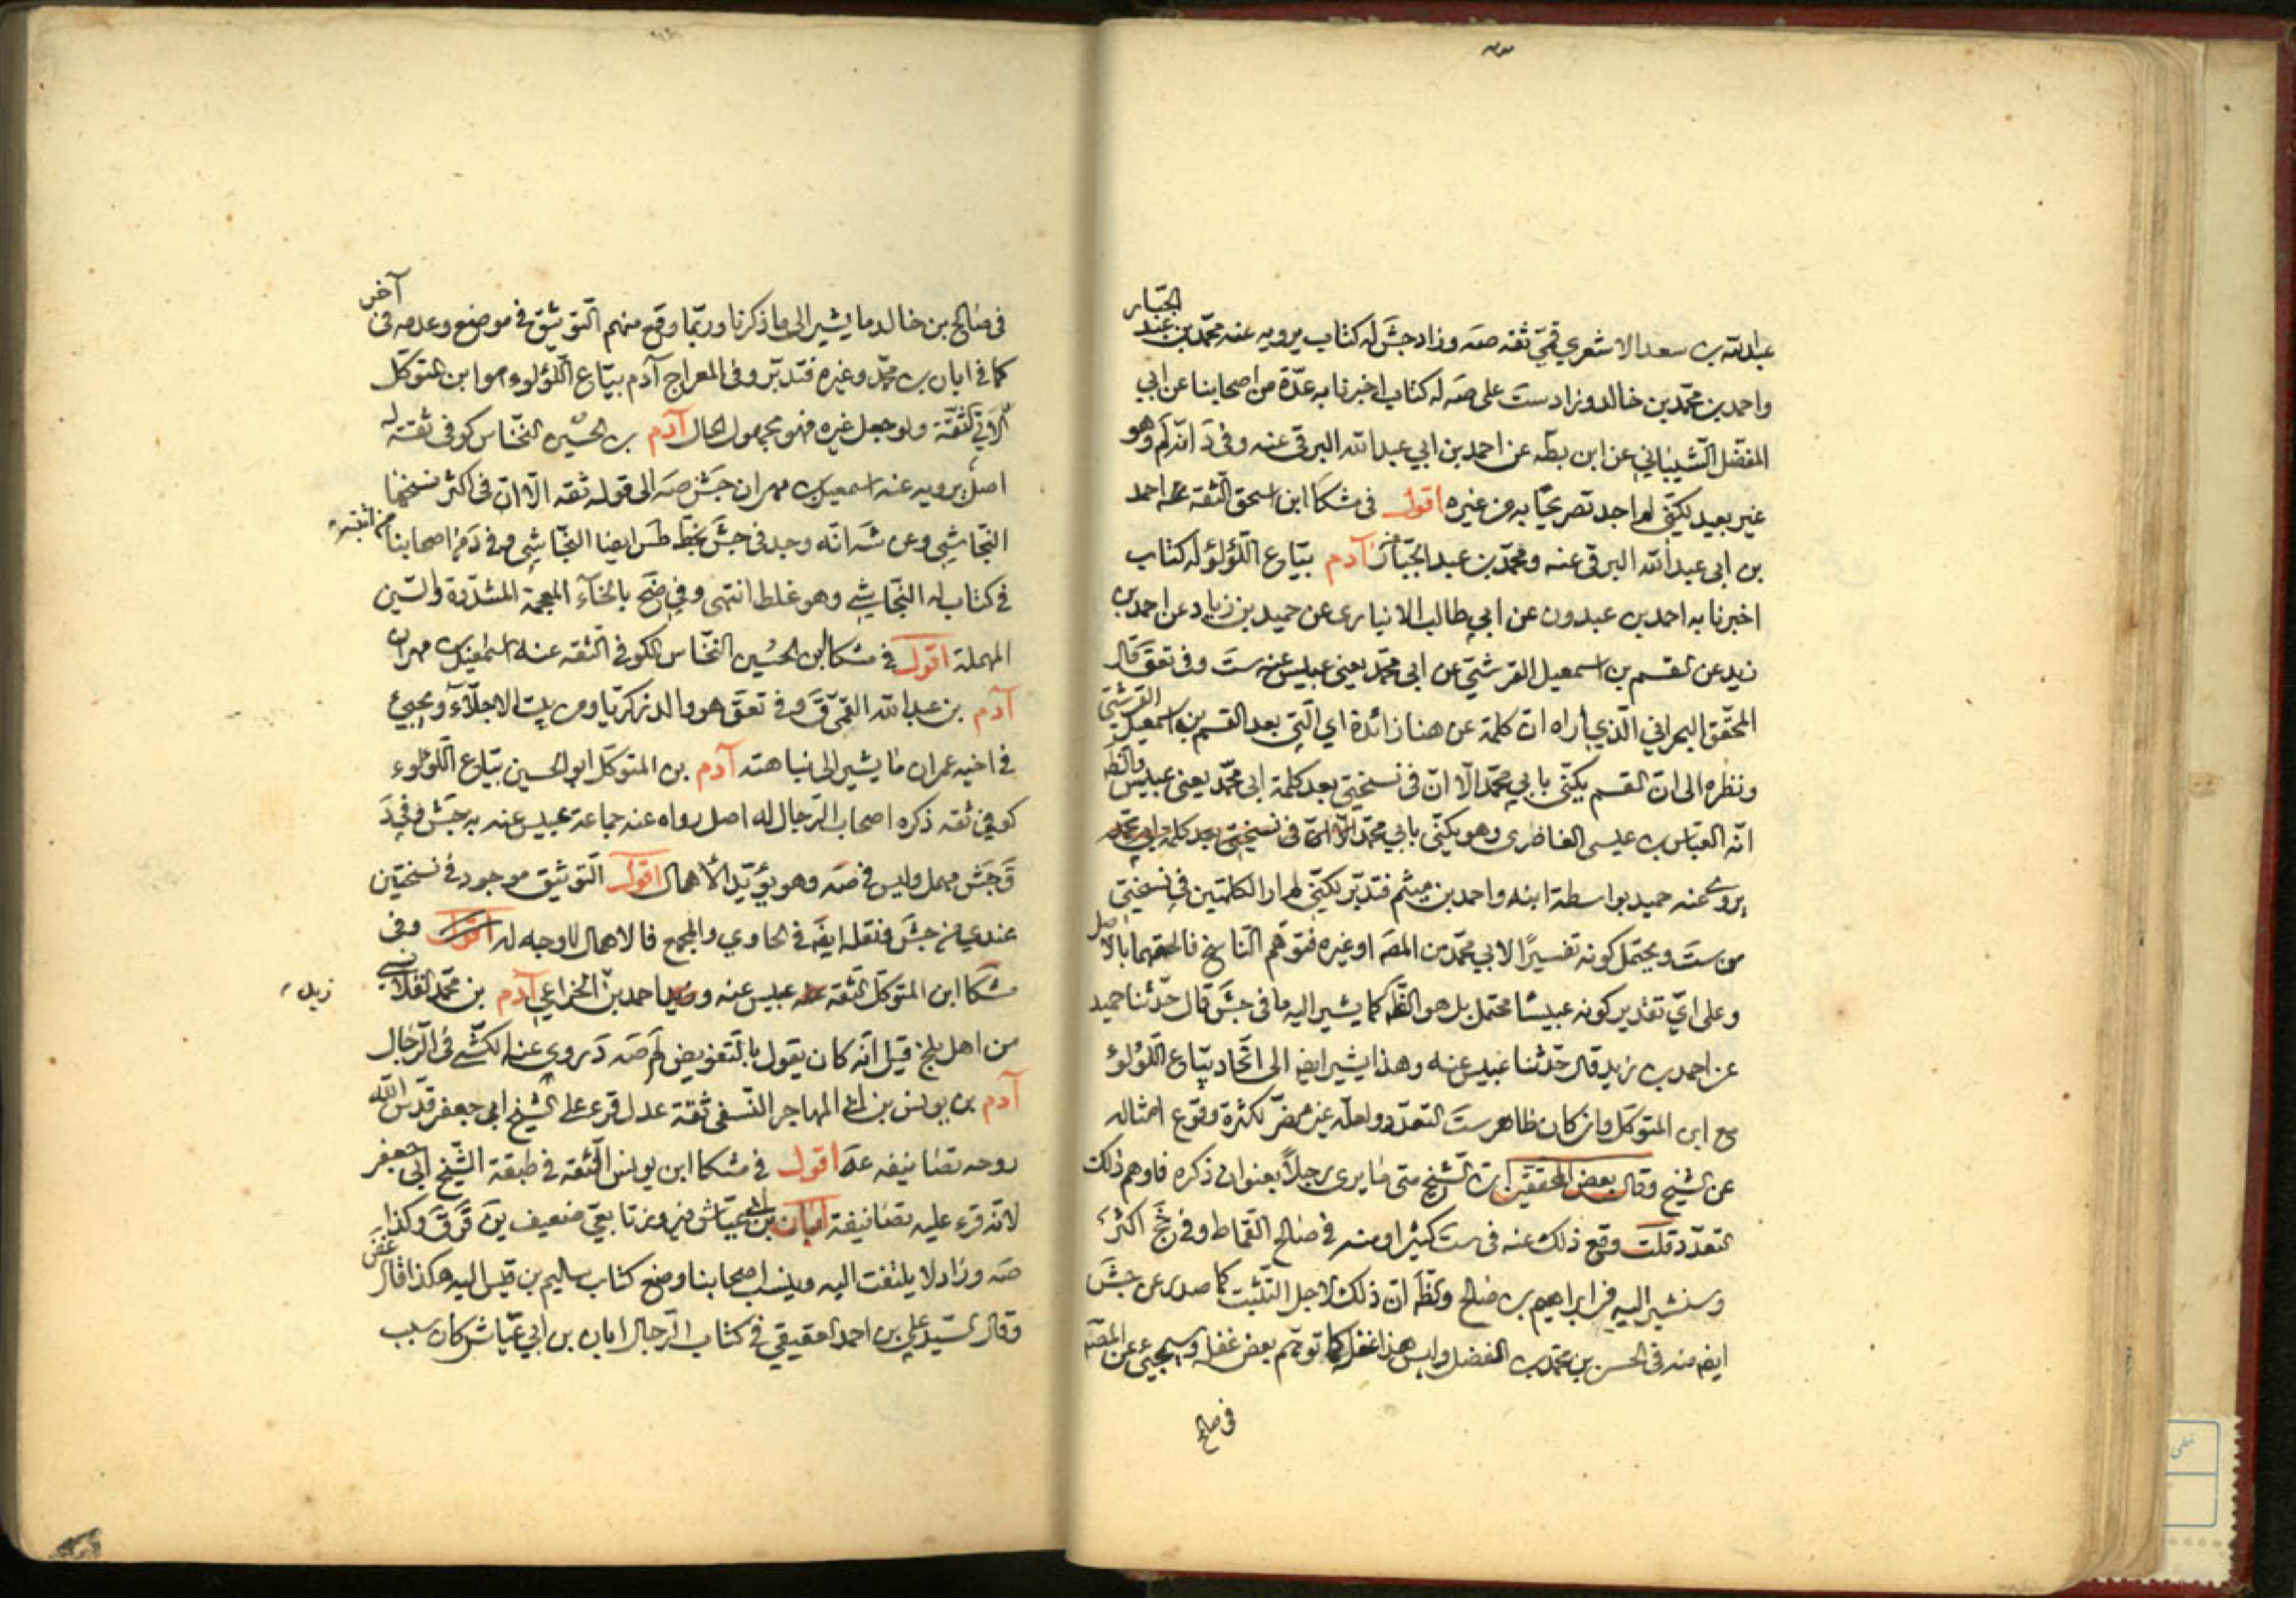 الجبار
عبدالله بن سعد الاشعري قمّي ثقه صه وزاد جش له كتاب يرويه عنه محمّد بن عبد
واحمد بن محمّد بن خالد وزاد ست على صه له كتاب اخبرنا به عدّة من اصحابنا عن ابي
المفضل الشّيباني عن ابن بطّه عن احمد بن ابي عبدالله البرقي عنه وفي د انّه لم وهو
غير بعيد لكنّي لم اجد تصريحًا به من غيره اقول في مشكا ابن اسحق الثقة عنه احمد
بن ابي عبدالله البرقي عنه ومحمّد بن عبد الجبّار آدم بيّاع اللّؤلؤ له كتاب
اخبرنا به احمد بن عبدون عن ابي طالب الانباري عن حميد بن زياد عن احمد بن
زيد عن القسم بن اسمعيل القرشيّ عن ابي محمّد يعني عبيس عنه ست وفي تعق قال
المحقّق البحراني الّذي اراه ان كلمة عن هنا زائدة اي الّتي بعد القسم بن اسمعيل القرشيّ
ونظره الى ان القسم يكنّى بابي محمّد الّا انّ في نسختي بعد كلمة ابي محمّد يعني عبيس والظّ
انّه العبّاس بن عيسى الغاضري وهو يكنّى بابي محمّد الّا انّ في نسختي بعد كلمة ابي محمّد
يروي عنه حميد بواسطة ابنه واحمد بن ميثم فتدبّر لكنّي لم ار الكلمتين في نسختي
من ست ويحتمل كونه تفسيرًا لابي محمّد من المصه او غيره فتوهّم النّاسخ فالحقهما بالاصل
وعلى ايّ تقدير كونه عبيسًا محتمل بل هو الظّ كما يشير اليه ما في جش قال حدّثنا حميد
عن احمد بن زيد قال حدّثنا عبيس عنه وهذا يشير ايض الى اتّحاد بيّاع اللّؤلؤ
مع ابن المتوكّل وان كان ظاهر ست التعدّد ولعلّه غير مضرّ لكثرة وقوع امثاله
عن الشيخ وقال بعض المحققين ان الشّيخ متى ما يرى رجلًا بعنوان ذكره فاوهم ذلك
التعدّد قلت وقع ذلك عنه في ست كثيرا ومنه في صالح القمّاط وفي جخ اكثر
وسنشير اليه في ابراهيم بن صالح والظّ انّ ذلك لاجل التّثبّت كما صدر عن جش
ايض منه في الحسن بن محمّد بن الفضل وليس هذا غفلة كما توهّم بعض غفل وسيجيئ عن المصه
في صالح
في صالح بن خالد ما يشير الى ما ذكرنا وربّما وقع منهم التّوثيق في موضع وعدمه في آخر
كما في ابان بن محمّد وغيره فتدبّر وفي المعراج آدم بيّاع اللّؤلوء هو ابن المتوكّل
الاتي الثقة ولو جعل غيره فهو مجهول الحال آدم بن الحسين النخّاس كوفي ثقة له
اصل يرويه عنه اسمعيل بن مهران جش صه الى قوله ثقه الّا انّ في اكثر نسخها
النجّاشي وعن شه انّه وجد في جش بخطّ طس ايضا النجّاشي وفي د من اصحابنا من اثبته
في كتاب له النجّاشي وهو غلط انتهى وفي ضح بالخآء المعجمة المشدّدة والسّين
المهملة اقول في مشكا ابن الحسين النخّاس الكوفي الثقه عنه اسمعيل بن مهران
آدم بن عبدالله القمّي ق وفي تعق هو والد زكريّا ومن بيت الاجلّاء ويجيئ
في اخيه عمران ما يشير الى نباهته آدم بن المتوكّل ابو الحسين بيّاع اللّؤلوء
كوفي ثقه ذكره اصحاب الرّجال له اصل رواه عنه جماعة عبيس عنه به جش وفي د
ق جش مهمل وليس في صه وهو يؤيّد الاهمال اقول التّوثيق موجود في نسختين
عندي من جش ونقله ايض في الحاوي والمجمع فالاهمال لا وجه له اقول وفي
مشكا ابن المتوكّل الثقه عنه عبيس عنه واحمد بن الخزاعي آدم بن محمّد القلانسي
زيد
من اهل بلخ قيل انّه كان يقول بالتّفويض لم صه د روى عنه الكشّي في الرّجال
آدم بن يونس بن ابي المهاجر النّسفي ثقة عدل قرء على الشيخ ابي جعفر قدّس الله
روحه تصانيفه عه اقول في مشكا ابن يونس الثقة في طبقة الشّيخ ابي جعفر
لانّه قرء عليه تصانيفه ابان بن ابي عيّاش فيروز تابعيّ ضعيف ين قر ق وكذا
صه وزاد لا يلتفت اليه وينسب اصحابنا وضع كتاب سليم بن قيس اليه هكذا قال غض
وقال السّيّد علي بن احمد العقيقي في كتاب الرّجال ابان بن ابي عيّاش كان سبب